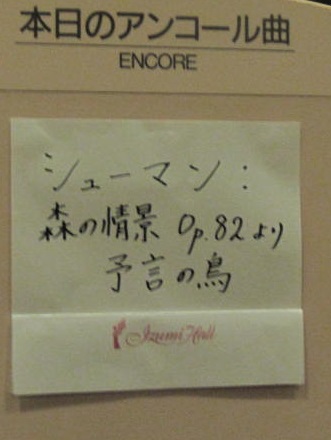 本日のアンコール曲
ENCORE
シューマン：
森の情景 Op.82より
予言の鳥
Izumi Hall